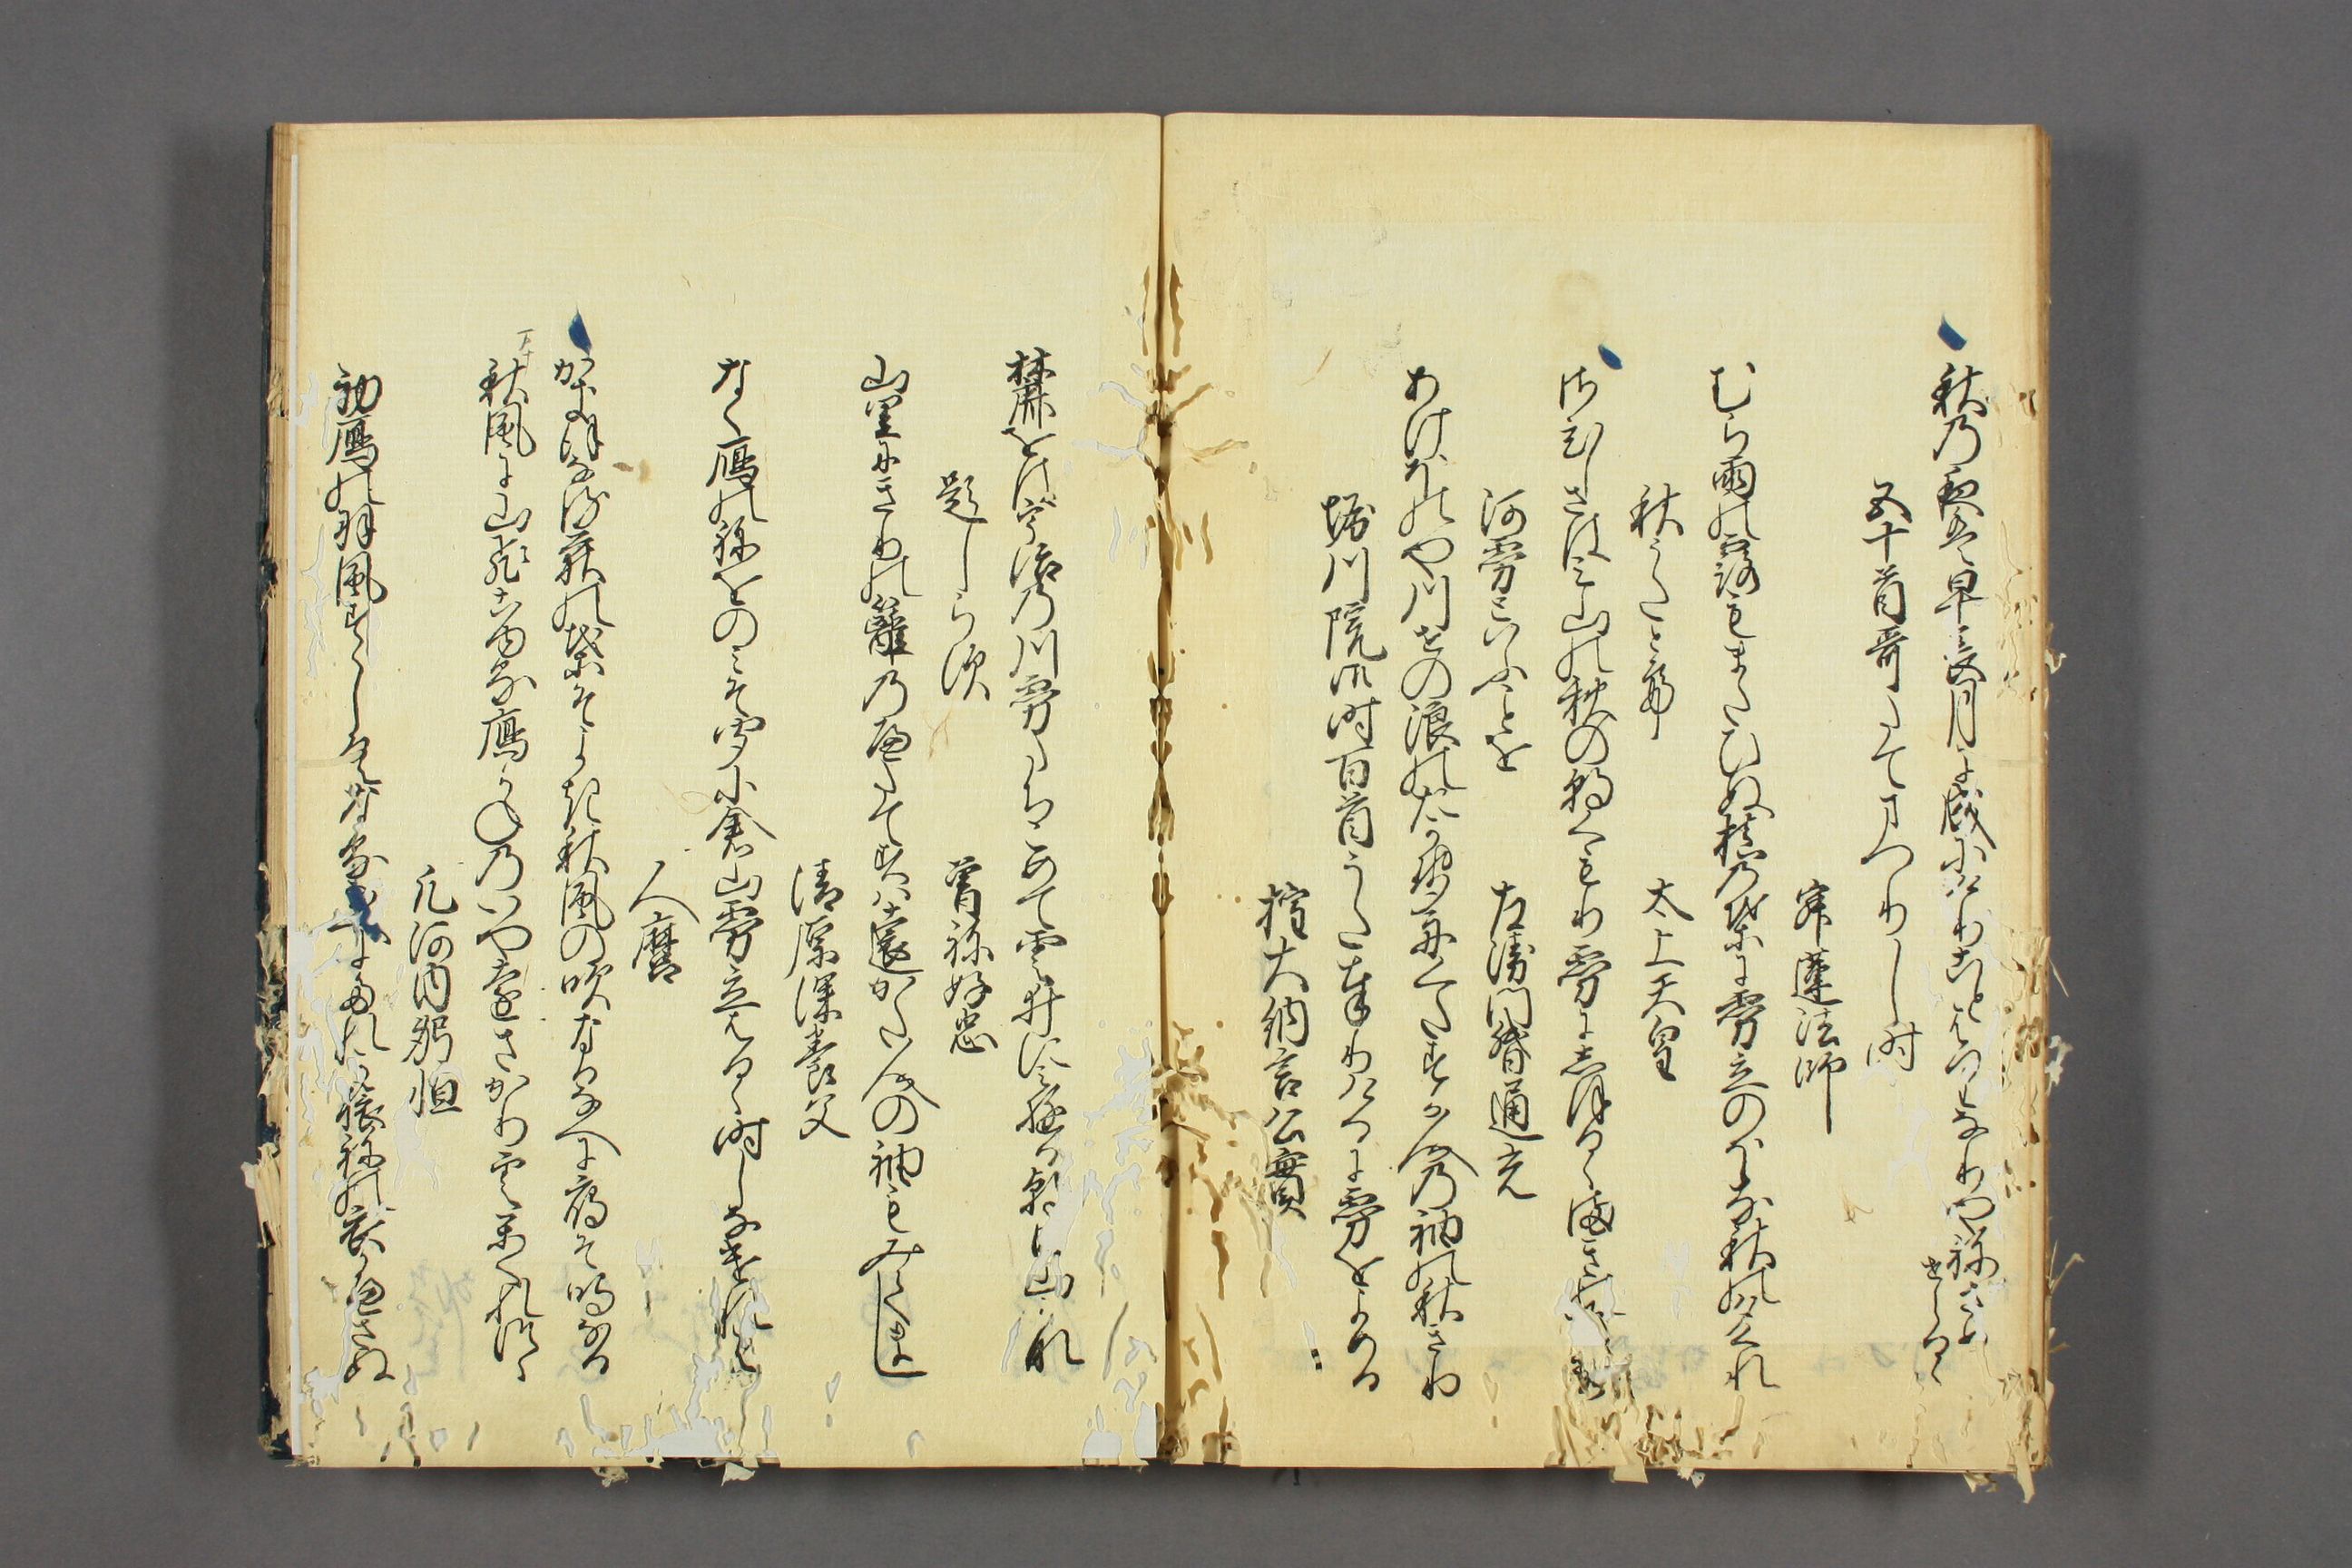 秋乃夜は早長月に成にけりことはりなりやね覚
せらるゝ
五十首哥たてまつりし時
寂蓮法師
むら雨の露もまたひぬ槙の葉に霧立のほる秋の夕くれ
秋うたとて
太上天皇
さひしさはみ山の秋の朝くもり霧にしほるゝ槙の下露
河霧といふことを
左衛門督通光
あけほのや川せの浪のたかせ舟くたすか人の袖の秋きり
堀川院御時百首うたたてまつりけるに霧をよめる
権大納言公實
麓をは宇治の川霧たちこめて雲井に見ゆる朝日山かな
題しらす
曽祢好忠
山里にきりの籬のへたてすは遠かた人の袖もみてまし
清原深養父
なく鴈のねをのみそ聞小倉山霧立はるゝ時しなけれは
人麿
かきほなる荻の葉そよき秋風の吹なるなへに鴈そ鳴なる
秋風に山飛こゆる鴈かねのいや遠さかり雲かくれつゝ
凡河内躬恒
初鴈の羽風すゝしくなるなへにたれか旅ねの衣かへさぬ